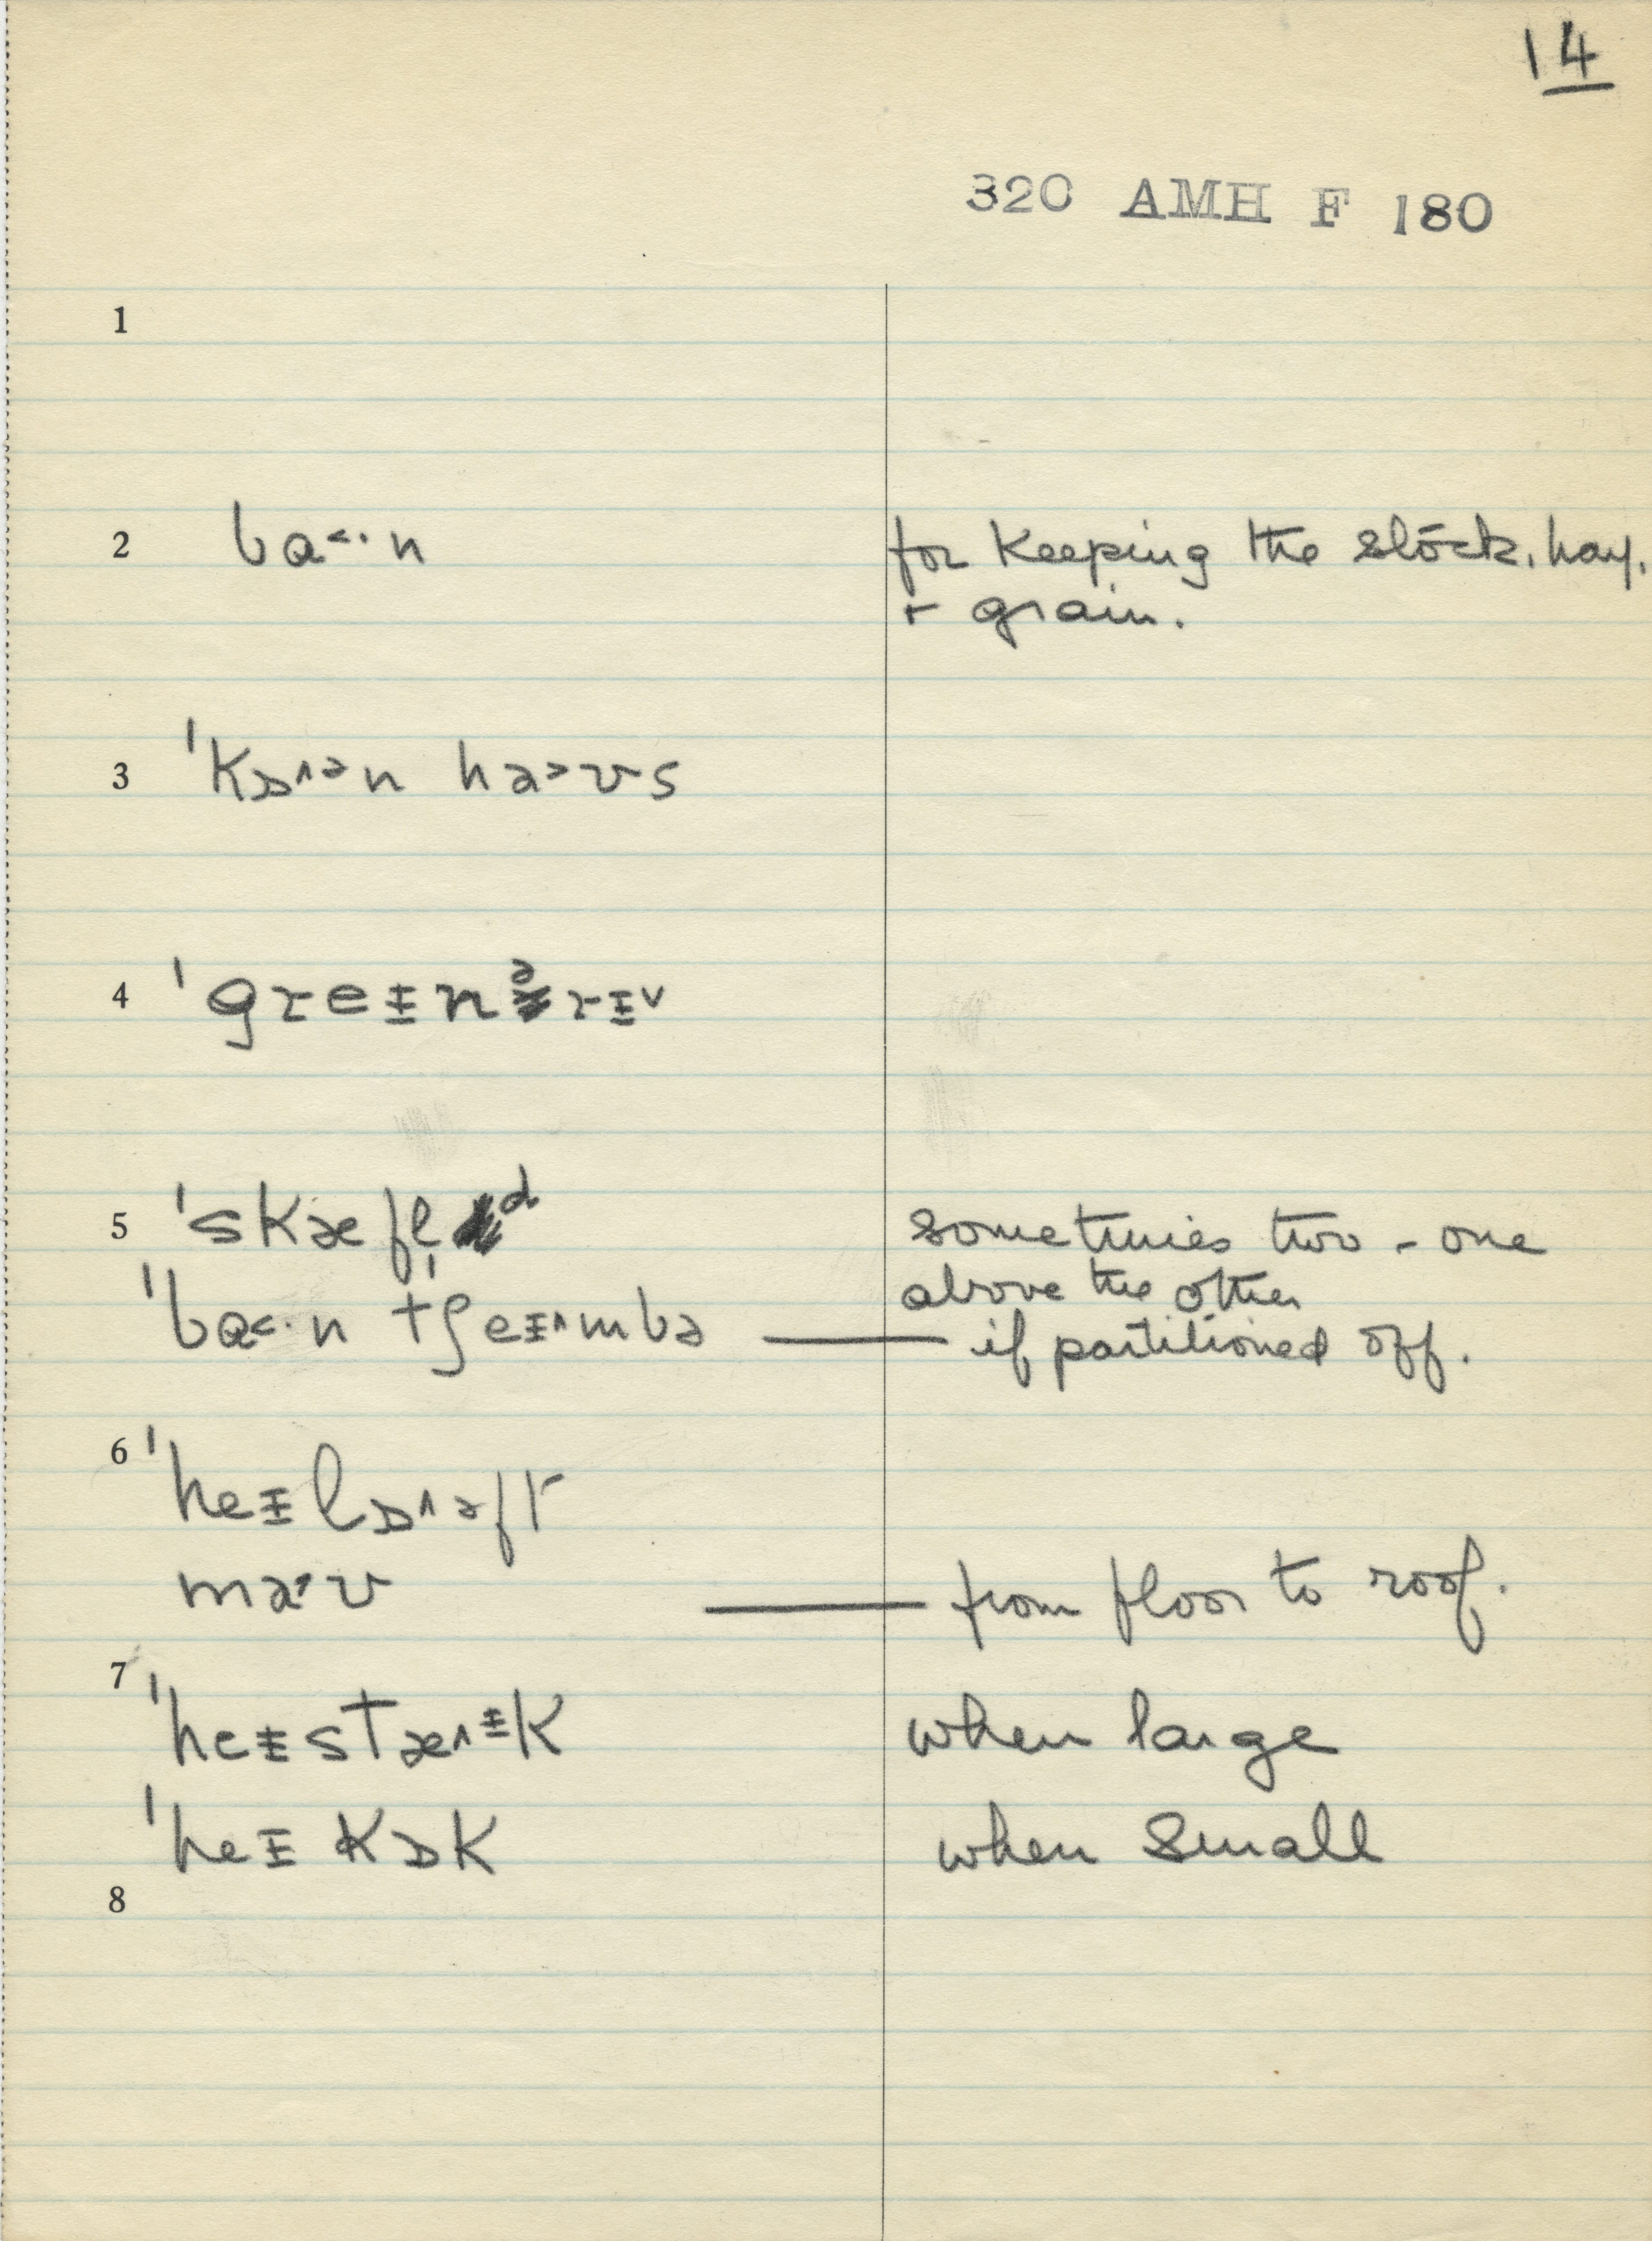 14
320 AMH F 180
1
2 bɑ<·n for keeping the stock, hay,
+ grain.
3 ˈkɒ^ən ha>ʊs
4 ˈgreɪnərɪv
5 ˈskæfl̩d sometimes two - one
above the other
ˈbɑ<·n tʃeɪ^mbə — if partitioned off.
6 ˈheɪlɒ^əft
maʊ — from floor to roof.
7 ˈheɪstæ^ɪk when large
ˈheɪkɒk when small
8